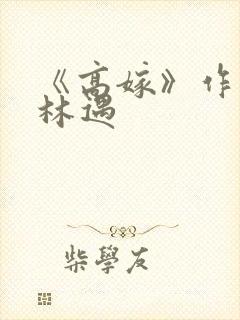 《高嫁》作
林遇
柴學友